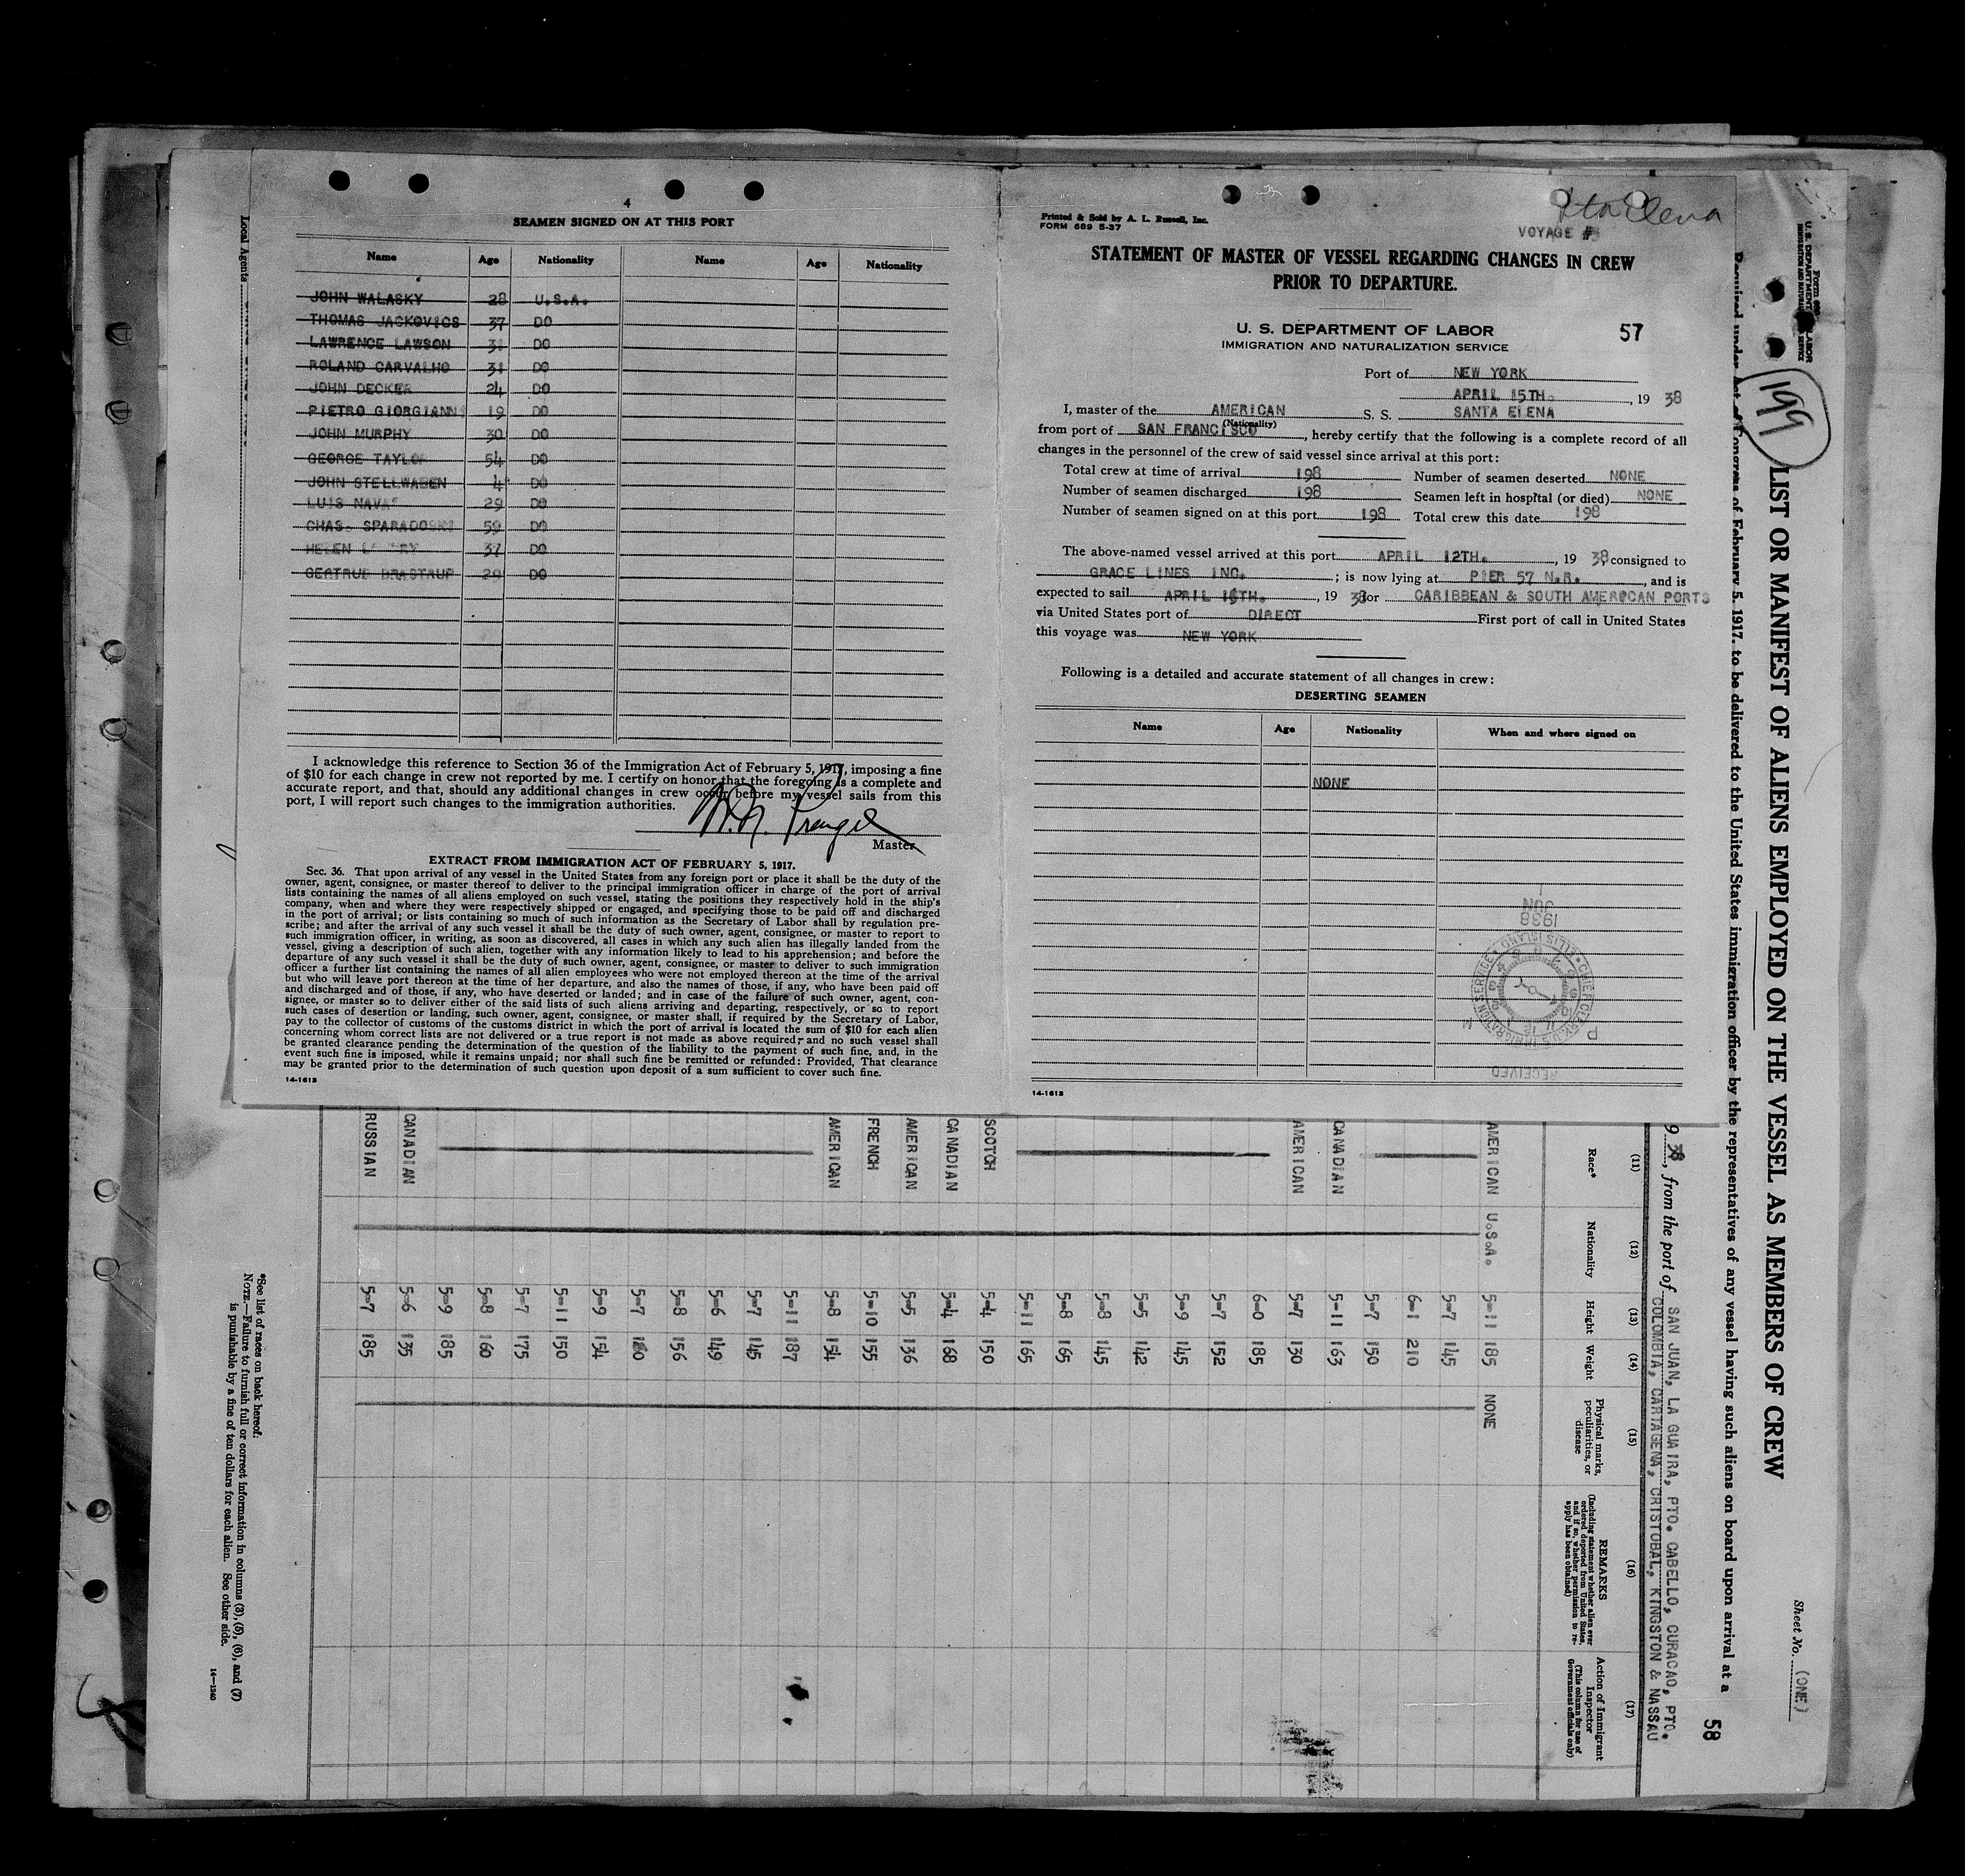 4
SEAMEN SIGNED ON AT THIS PORT
Name Age Nationality Name Age Nationality
JOHN WALASKY 28 U.S.A.
THOMAS JACKOVICS 37 DO
LAWRENCE LAWSON 31 DO
ROLAND CARVALHO 31 DO
JOHN DECKER 24 DO
PIETRO GIORGIANNI 19 DO
JOHN MURPHY 30 DO
GEORGE TAYLOR 54 DO
JOHN STELLWABEN DO
LUIS NAVAS 29 DO
CHAS. SPARADOSKI 59 DO
HELEN 37 DO
GERTRUD BRASTRUP 29 DO
I acknowledge this reference to Section 36 of the Immigration Act of February 5, 1917, imposing a fine
of $10 for each change in crew not reported by me. I certify on honor that the foregoing is a complete and
accurate report, and that, should any additional changes in crew occur before my vessel sails from this
port, I will report such changes to the immigration authorities.
Master
EXTRACT FROM IMMIGRATION ACT OF FEBRUARY 5, 1917.
Sec. 36. That upon arrival of any vessel in the United States from any foreign port or place it shall be the duty of the
owner, agent, consignee, or master thereof to deliver to the principal immigration officer in charge of the port of arrival
lists containing the names of all aliens employed on such vessel, stating the positions they respectively hold in the ship's
company, when and where they were respectively shipped or engaged, and specifying those to be paid off and discharged
in the port of arrival; or lists containing so much of such information as the Secretary of Labor shall by regulation pre-
scribe; and after the arrival of any such vessel it shall be the duty of such owner, agent, consignee, or master to report to
such immigration officer, in writing, as soon as discovered, all cases in which any such alien has illegally landed from the
vessel, giving a description of such alien, together with any information likely to lead to his apprehension; and before the
departure of any such vessel it shall be the duty of such owner, agent, consignee, or master to deliver to such immigration
officer a further list containing the names of all alien employees who were not employed thereon at the time of the arrival
but who will leave port thereon at the time of her departure, and also the names of those, if any, who have been paid off
and discharged and of those, if any, who have deserted or landed; and in case of the failure of such owner, agent, con-
signee, or master so to deliver either of the said lists of such aliens arriving and departing, respectively, or so to report
such cases of desertion or landing, such owner, agent, consignee, or master shall, if required by the Secretary of Labor,
pay to the collector of customs of the customs district in which the port of arrival is located the sum of $10 for each alien
concerning whom correct lists are not delivered or a true report is not made as above required; and no such vessel shall
be granted clearance pending the determination of the question of the liability to the payment of such fine, and, in the
event such fine is imposed, while it remains unpaid; nor shall such fine be remitted or refunded: Provided, That clearance
may be granted prior to the determination of such question upon deposit of a sum sufficient to cover such fine.
14-1613
Local Agents
Sta Elena
Printed & Sold by A. L. Russell, Inc.
FORM 689 5-37
VOYAGE #
STATEMENT OF MASTER OF VESSEL REGARDING CHANGES IN CREW
PRIOR TO DEPARTURE.
U. S. DEPARTMENT OF LABOR 57
IMMIGRATION AND NATURALIZATION SERVICE
Port of NEW YORK
APRIL 15TH. , 19 38
I, master of the AMERICAN S. S. SANTA ELENA
(Nationality)
from port of SAN FRANCISCO , hereby certify that the following is a complete record of all
changes in the personnel of the crew of said vessel since arrival at this port:
Total crew at time of arrival 198 Number of seamen deserted NONE
Number of seamen discharged 198 Seamen left in hospital (or died) NONE
Number of seamen signed on at this port 198 Total crew this date 198
The above-named vessel arrived at this port APRIL 12TH. , 19 38, consigned to
GRACE LINES INC. ; is now lying at PIER 57 N.R. , and is
expected to sail APRIL 16TH. , 19 38for CARIBBEAN & SOUTH AMERICAN PORTS
via United States port of DIRECT First port of call in United States
this voyage was NEW YORK
Following is a detailed and accurate statement of all changes in crew:
DESERTING SEAMEN
Name Age Nationality When and where signed on
NONE
JUN
1938
CHIEF CLERK U.S. IMMIGRATION SERVICE ELLIS ISLAND
P M
RECEIVED
14-1613
Form 689
U. S. DEPARTMENT OF LABOR
IMMIGRATION AND NATURALIZATION SERVICE
199
LIST OR MANIFEST OF ALIENS EMPLOYED ON THE VESSEL AS MEMBERS OF CREW
Sheet No. (ONE)
Required under Act of Congress of February 5, 1917, to be delivered to the United States immigration officer by the representatives of any vessel having such aliens on board upon arrival at a
58
9 38, from the port of SAN JUAN, LA GUAIRA, PTO. CABELLO, CURACAO, PTO.
COLOMBIA, CARTAGENA, CRISTOBAL, KINGSTON & NASSAU
(11) (12) (13) (14) (15) (16) (17)
Race* Nationality Height Weight Physical marks, peculiarities, or disease REMARKS (Including statement whether alien ever ordered deported from United States, and if so, whether permission to re-apply has been obtained) Action of Immigrant Inspector (This column for use of Government officials only)
AMERICAN U.S.A. 5-11 185 NONE
5-7 145
6-1 210
5-7 150
CANADIAN 5-11 163
AMERICAN 5-7 130
6-0 185
5-7 152
5-9 145
5-5 142
5-8 145
5-8 165
5-11 165
SCOTCH 5-4 150
CANADIAN 5-4 168
AMERICAN 5-5 136
FRENCH 5-10 155
AMERICAN 5-8 154
5-11 187
5-7 145
5-6 149
5-8 156
5-7 180
5-9 154
5-11 150
5-7 175
5-8 160
5-9 185
CANADIAN 5-6 135
RUSSIAN 5-7 185
*See list of races on back hereof.
NOTE.—Failure to furnish full or correct information in columns (3), (5), (6), and (7)
is punishable by a fine of ten dollars for each alien. See other side.
14—1240